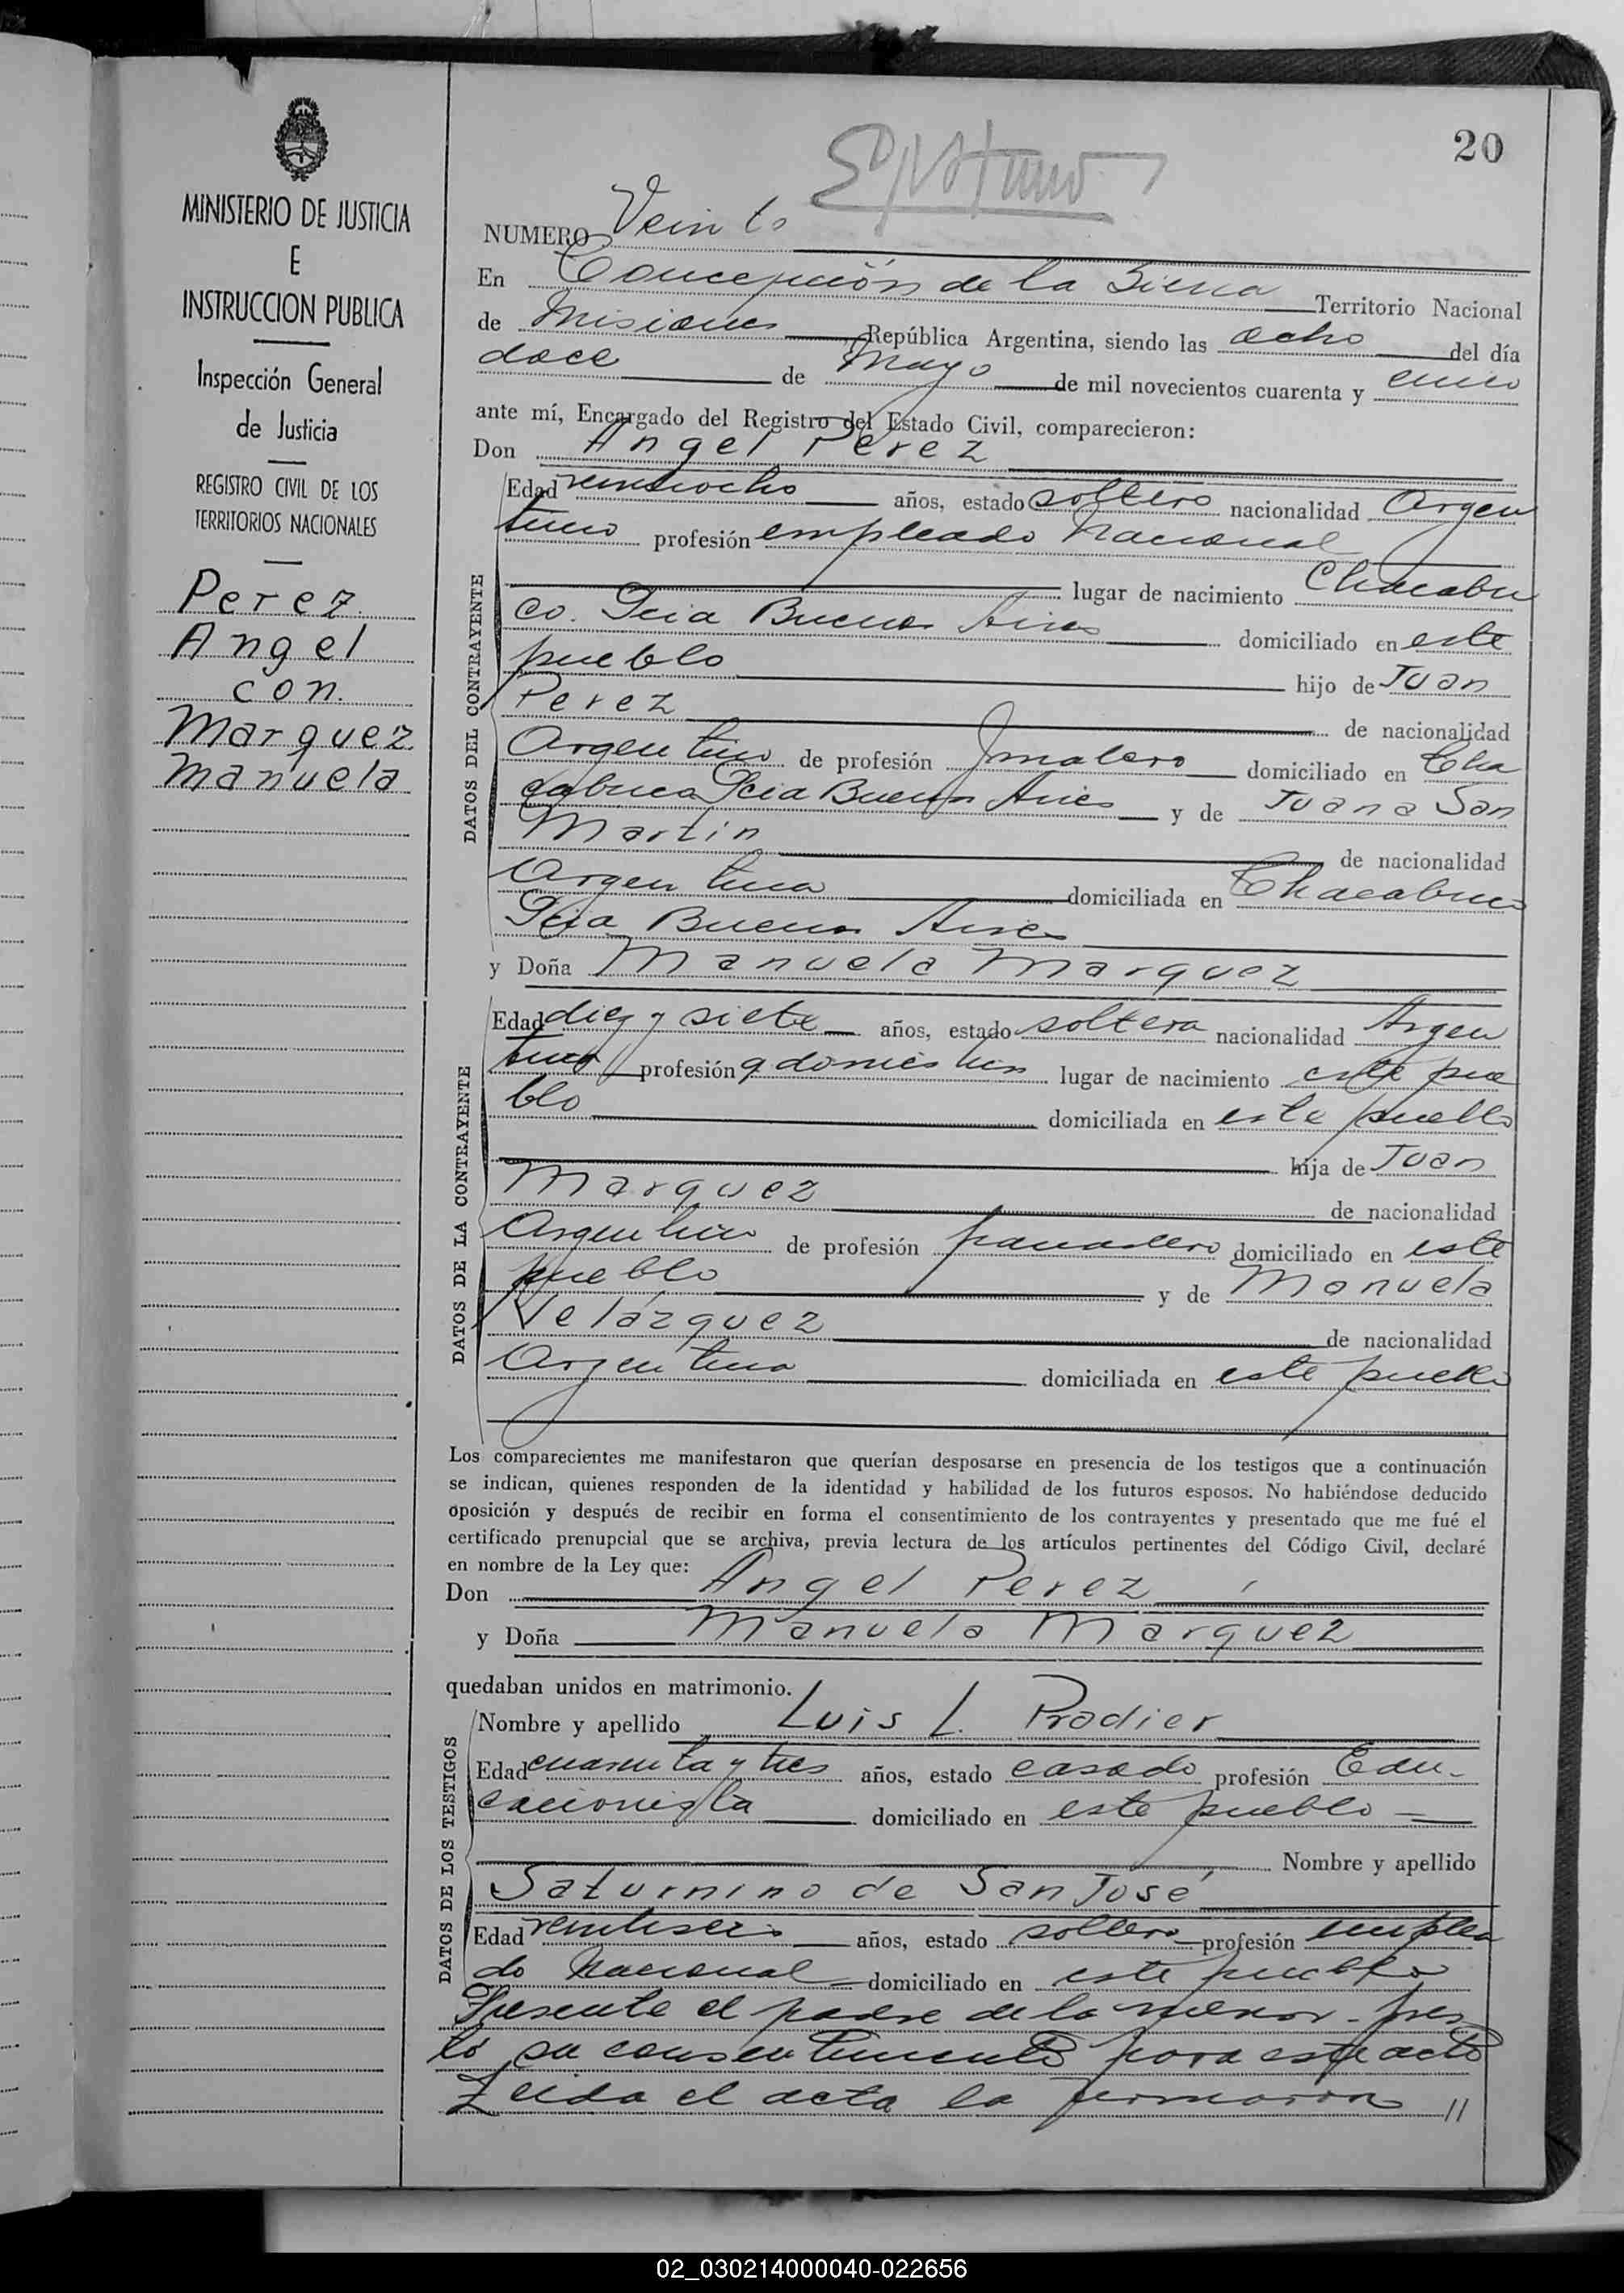 20
MINISTERIO DE JUSTICIA
E
INSTRUCCION PUBLICA
Inspección General
de Justicia
REGISTRO CIVIL DE LOS
TERRITORIOS NACIONALES
Perez
Angel
con.
Marquez
Manuela
NUMERO Veinte
En Concepción de la Sierra Territorio Nacional
de Misiones República Argentina, siendo las ocho del día
doce de Mayo de mil novecientos cuarenta y cinco
ante mí, Encargado del Registro del Estado Civil, comparecieron:
Don Angel Perez
DATOS DEL CONTRAYENTE
Edad veintiocho años, estado soltero nacionalidad Argen
tino profesión empleado Nacional
lugar de nacimiento Chacabu
co. Pcia Buenos Aires domiciliado en este
pueblo hijo de Juan
Perez de nacionalidad
Argentino de profesión Jornalero domiciliado en Cha
cabuco Pcia Buenos Aires y de Juana San
Martin de nacionalidad
Argentina domiciliada en Chacabuco
Pcia Buenos Aires
y Doña Manuela Marquez
DATOS DE LA CONTRAYENTE
Edad diez y siete años, estado soltera nacionalidad Argen
tina profesión q domésticos lugar de nacimiento este pue
blo domiciliada en este pueblo
hija de Juan
Marquez de nacionalidad
Argentino de profesión panadero domiciliado en este
pueblo y de Manuela
Velázquez de nacionalidad
Argentina domiciliada en este pueblo
Los comparecientes me manifestaron que querían desposarse en presencia de los testigos que a continuación
se indican, quienes responden de la identidad y habilidad de los futuros esposos. No habiéndose deducido
oposición y después de recibir en forma el consentimiento de los contrayentes y presentado que me fué el
certificado prenupcial que se archiva, previa lectura de los artículos pertinentes del Código Civil, declaré
en nombre de la Ley que:
Don Angel Perez
y Doña Manuela Marquez
quedaban unidos en matrimonio.
DATOS DE LOS TESTIGOS
Nombre y apellido Luis L. Pradier
Edad cuarenta y tres años, estado casado profesión Edu-
cacionista domiciliado en este pueblo =
Nombre y apellido
Saturnino de San José
Edad veintiseis años, estado soltero profesión emplea
do Nacional domiciliado en este pueblo
Presente el padre de la menor pres
tó su consentimiento para este acto
Leida el acta la firmaron //
02_030214000040-022656